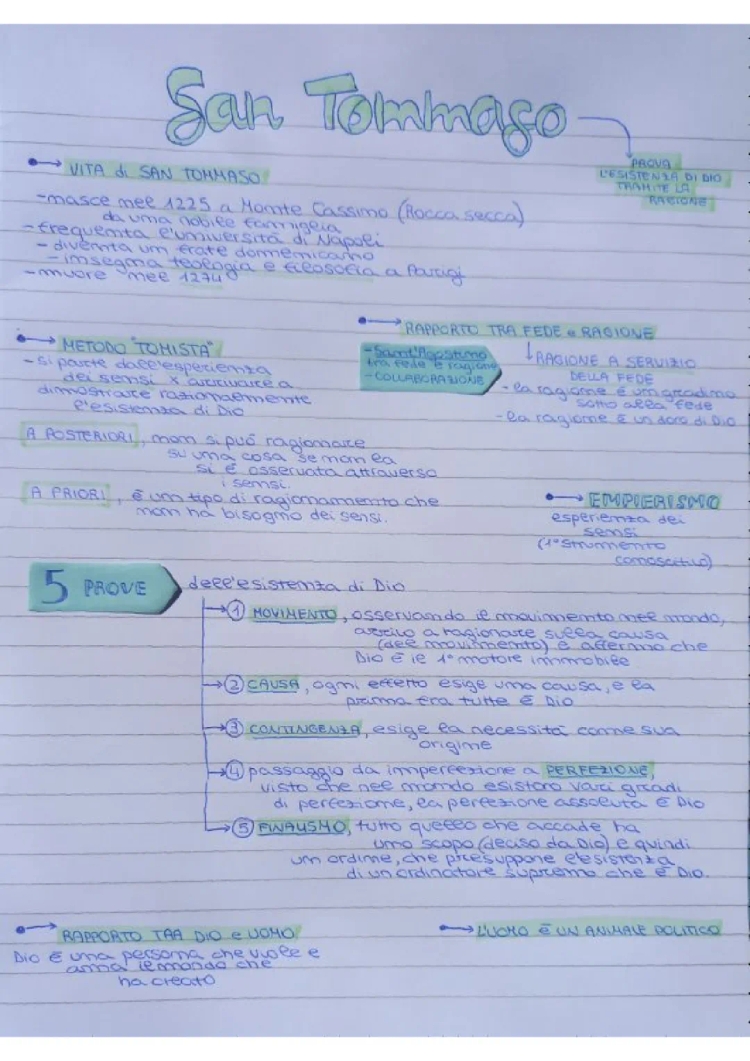 San Tommaso
PROVA
L'ESISTENZA DI DIO
TRAMITE LA
RAGIONE
VITA di SAN TOMMASO
-nasce nel 1225 a Monte Cassino (Rocca secca)
da una nobile famiglia
-frequenta l'università di Napoli
- diventa un frate domenicano
- insegna teologia e filosofia a Parigi
-muore nel 1274
METODO "TOMISTA"
- si parte dall'esperienza
dei sensi x arrivare a
dimostrare razionalmente
l'esistenza di Dio
A POSTERIORI, non si può ragionare
su una cosa se non la
si è osservata attraverso
i sensi.
A PRIORI, è un tipo di ragionamento che
non ha bisogno dei sensi.
RAPPORTO TRA FEDE e RAGIONE
-Sant'Agostino
tra fede e ragione
-COLLABORAZIONE
RAGIONE A SERVIZIO
DELLA FEDE
- la ragione è un gradino
sotto alla fede
- la ragione è un dono di Dio
EMPIERISMO
esperienza dei
sensi
(1° strumento
conoscitivo)
5 PROVE dell'esistenza di Dio
1 MOVIMENTO, osservando il movimento nel mondo,
arrivo a ragionare sulla causa
(del movimento) e affermo che
Dio è il 1° motore immobile
2 CAUSA, ogni effetto esige una causa, e la
prima fra tutte è Dio
3 CONTINGENZA, esige la necessità come sua
origine
4 passaggio da imperfezione a PERFEZIONE,
visto che nel mondo esistono vari gradi
di perfezione, la perfezione assoluta è Dio
5 FINALISMO, tutto quello che accade ha
uno scopo (deciso da Dio) e quindi
un ordine, che presuppone l'esistenza
di un ordinatore supremo che è Dio.
RAPPORTO TRA DIO e UOMO
Dio è una persona che vuole e
ama il mondo che
ha creato
L'UOMO È UN ANIMALE POLITICO